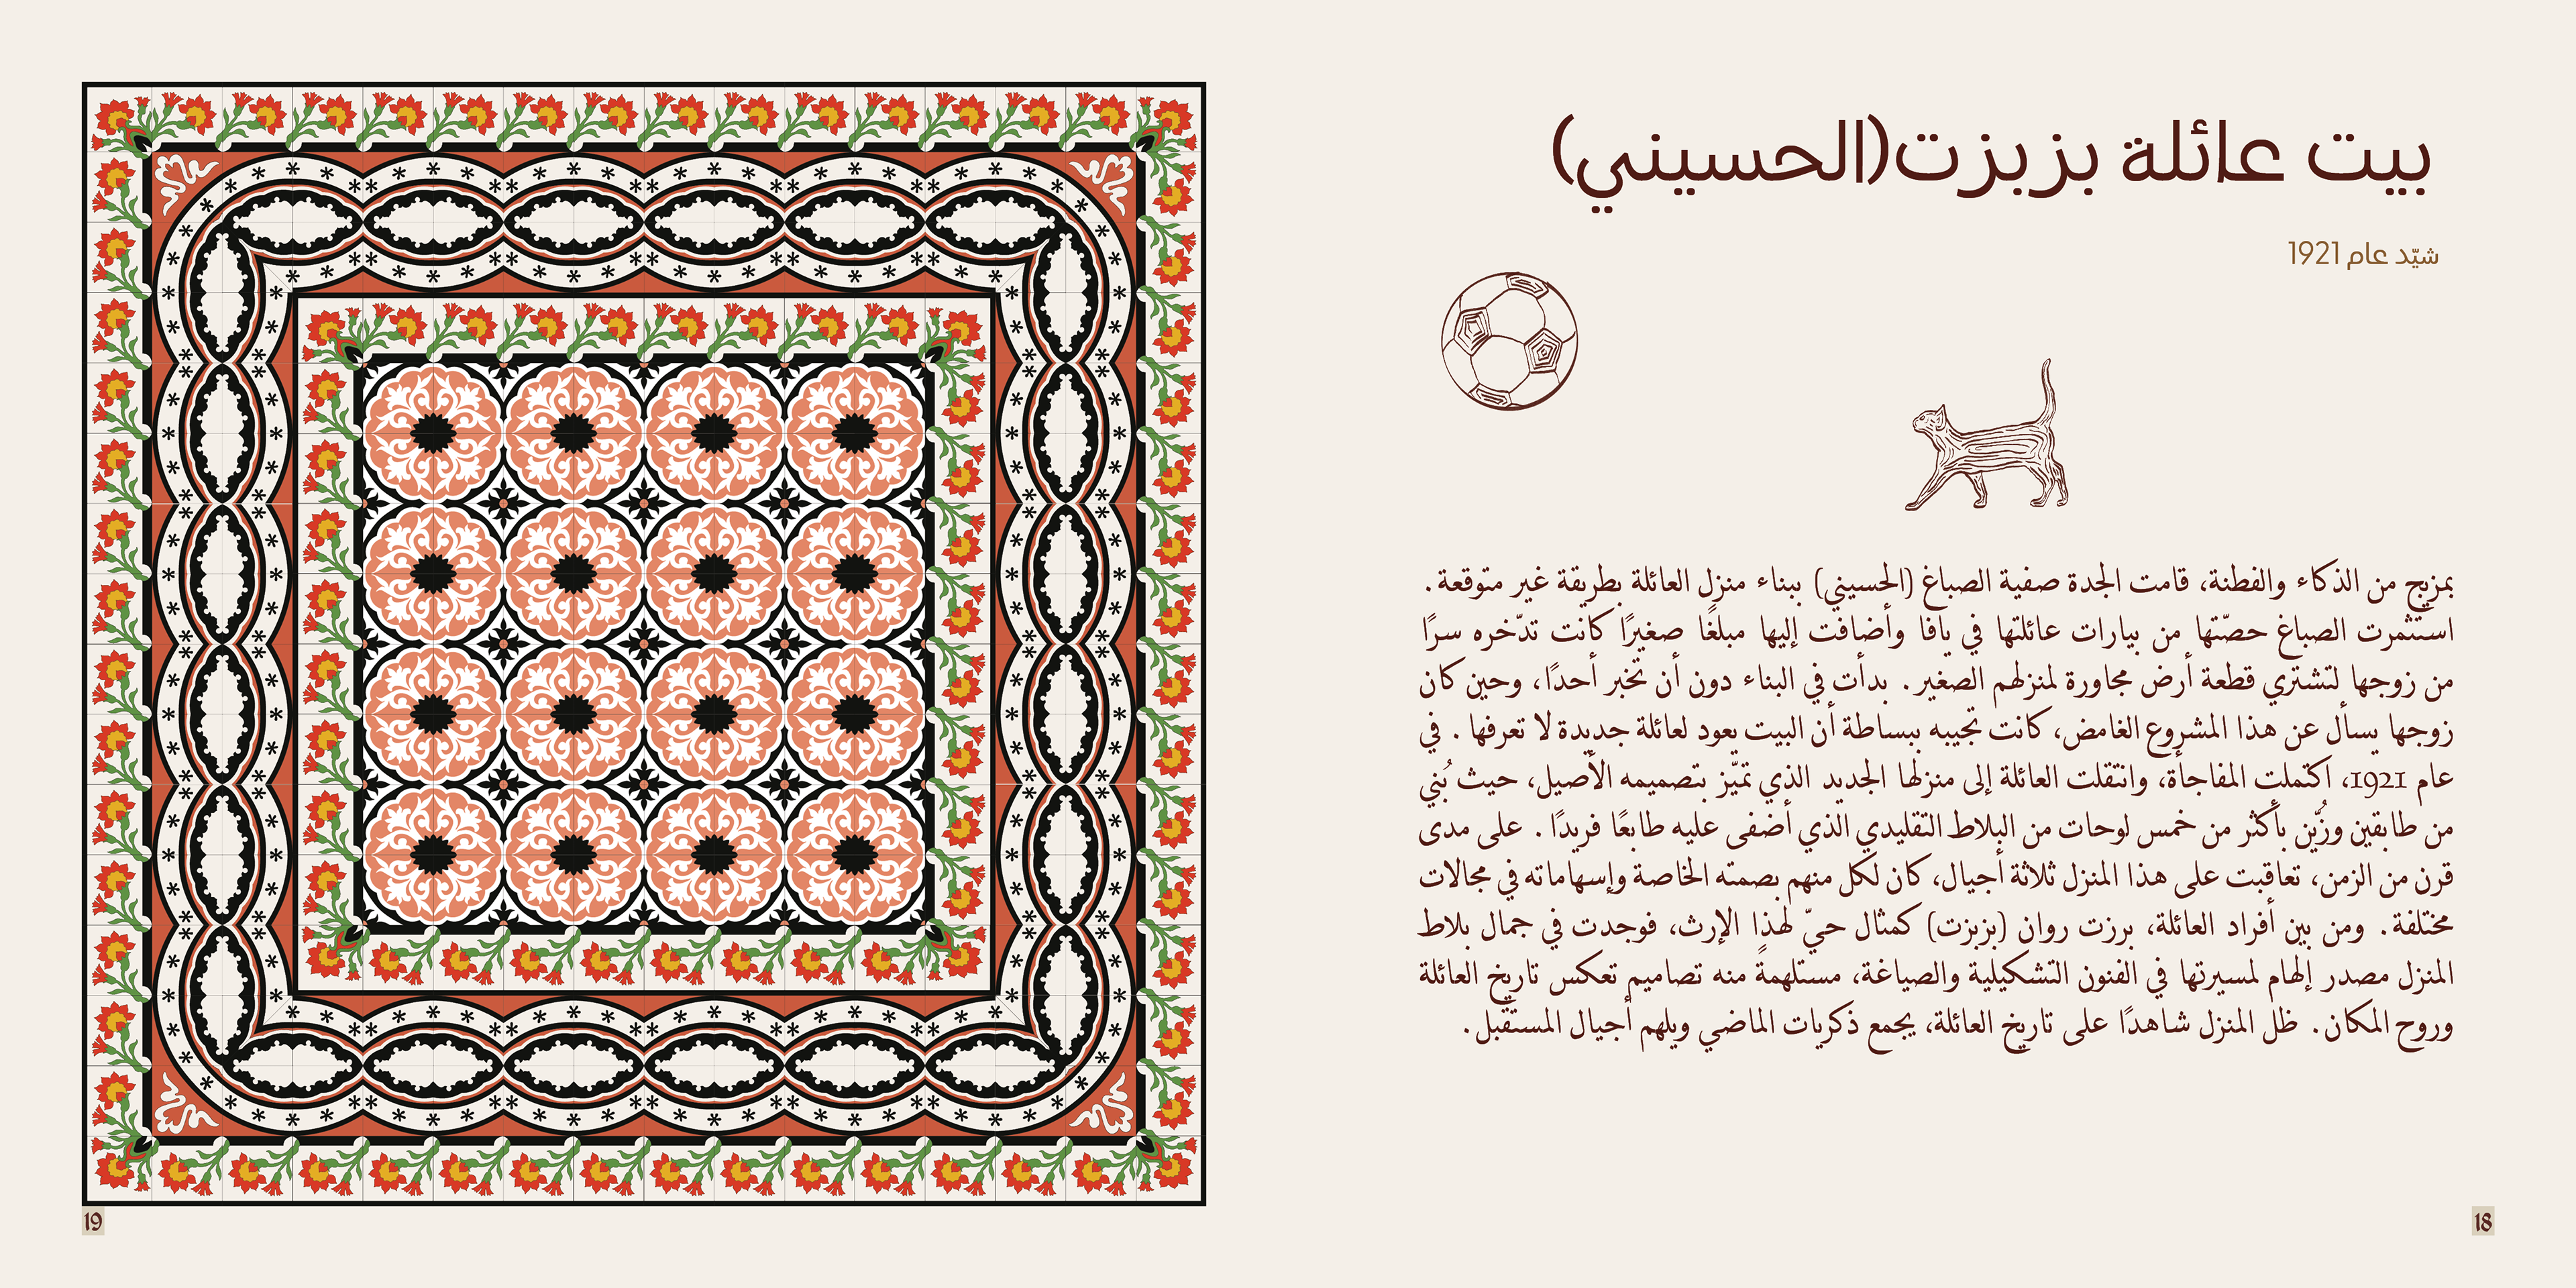 بيت عائلة بزبزت(الحسيني)
شيّد عام 1921
بمزيج من الذكاء والفطنة، قامت الجدة صفية الصباغ (الحسيني) ببناء منزل العائلة بطريقة غير متوقعة.
استثمرت الصباغ حصّتها من بيارات عائلتها في يافا وأضافت إليها مبلغًا صغيرًا كانت تدّخره سرًا
من زوجها لتشتري قطعة أرض مجاورة لمنزلهم الصغير. بدأت في البناء دون أن تخبر أحدًا، وحين كان
زوجها يسأل عن هذا المشروع الغامض، كانت تجيبه ببساطة أن البيت يعود لعائلة جديدة لا تعرفها. في
عام 1921، اكتملت المفاجأة، وانتقلت العائلة إلى منزلها الجديد الذي تميّز بتصميمه الأصيل، حيث بُني
من طابقين وزُيّن بأكثر من خمس لوحات من البلاط التقليدي الذي أضفى عليه طابعًا فريدًا. على مدى
قرن من الزمن، تعاقبت على هذا المنزل ثلاثة أجيال، كان لكل منهم بصمته الخاصة وإسهاماته في مجالات
مختلفة. ومن بين أفراد العائلة، برزت روان (بزبزت) كمثال حيّ لهذا الإرث، فوجدت في جمال بلاط
المنزل مصدر إلهام لمسيرتها في الفنون التشكيلية والصياغة، مستلهمةً منه تصاميم تعكس تاريخ العائلة
وروح المكان. ظل المنزل شاهدًا على تاريخ العائلة، يجمع ذكريات الماضي ويلهم أجيال المستقبل.
18
19